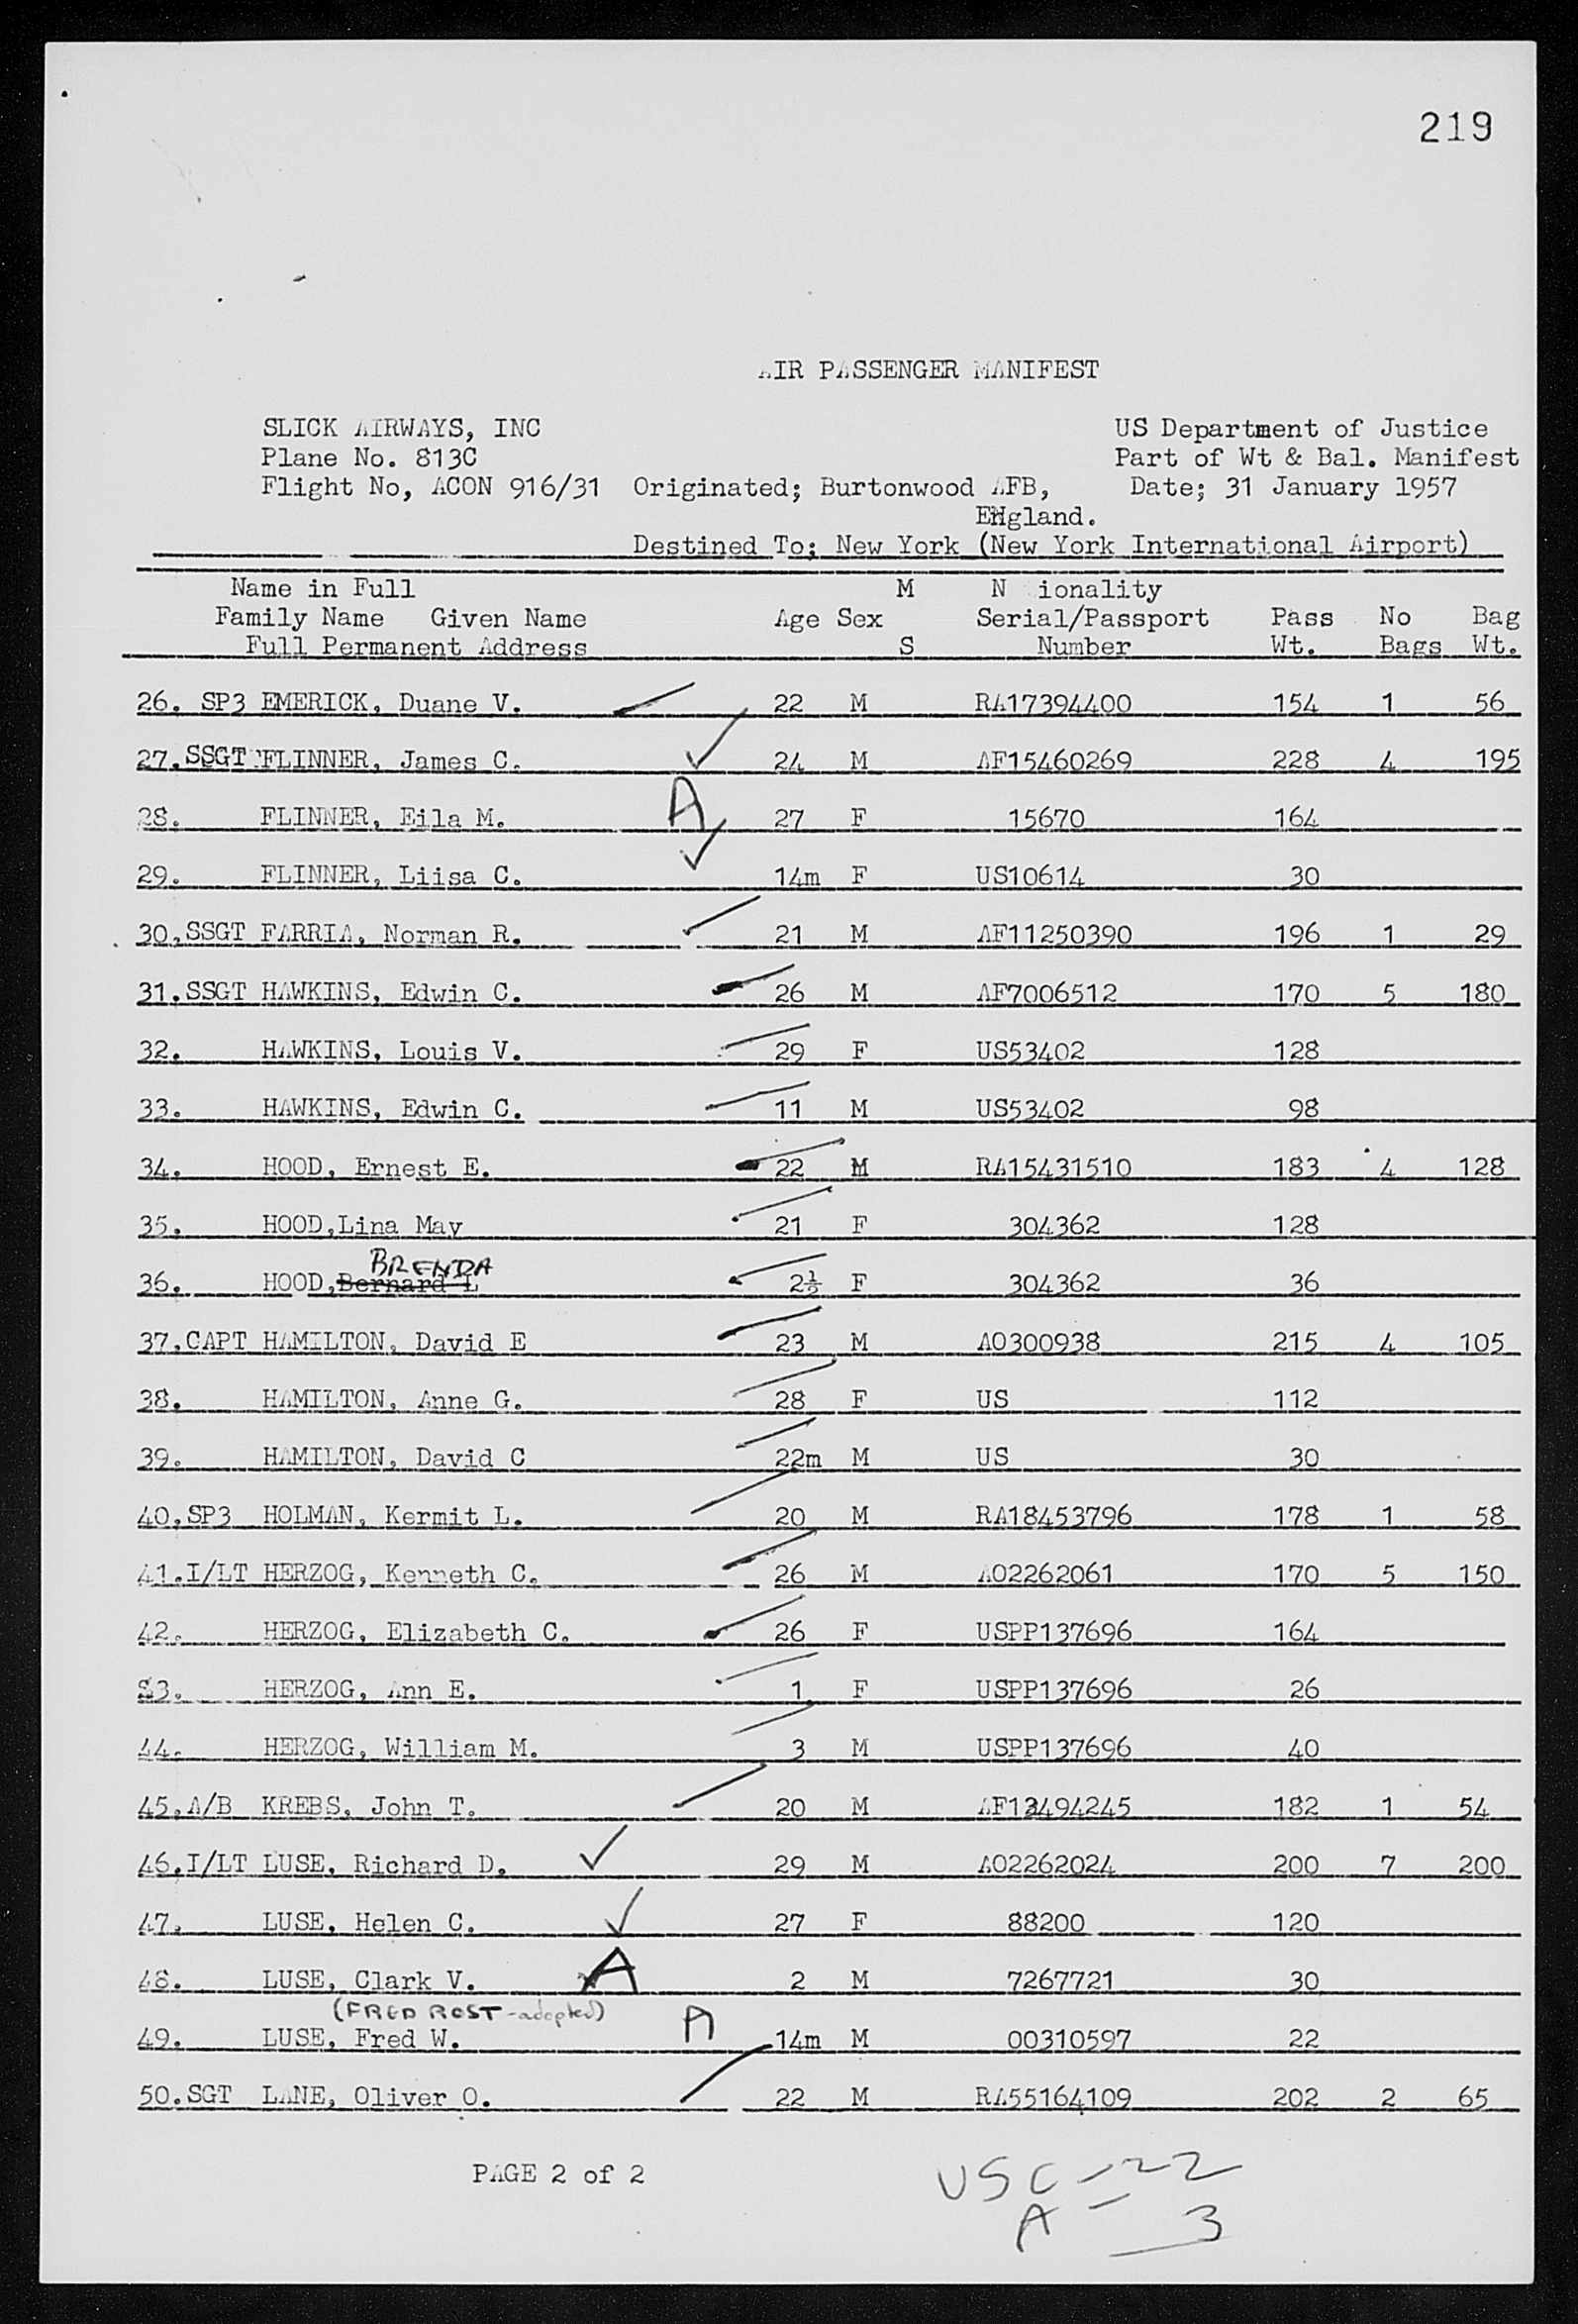 219
AIR PASSENGER MANIFEST
SLICK AIRWAYS, INC US Department of Justice
Plane No. 813C Part of Wt & Bal. Manifest
Flight No, ACON 916/31 Originated; Burtonwood AFB, Date; 31 January 1957
England.
Destined To; New York (New York International Airport)
Name in Full M N ionality
Family Name Given Name Age Sex Serial/Passport Pass No Bag
Full Permanent Address S Number Wt. Bags Wt.
26. SP3 EMERICK, Duane V. 22 M RA17394400 154 1 56
27.SSGT FLINNER, James C. 24 M AF15460269 228 4 195
28. FLINNER, Eila M. A 27 F 15670 164
29. FLINNER, Liisa C. 14m F US10614 30
30.SSGT FARRIA, Norman R. 21 M AF11250390 196 1 29
31.SSGT HAWKINS, Edwin C. 26 M AF7006512 170 5 180
32. HAWKINS, Louis V. 29 F US53402 128
33. HAWKINS, Edwin C. 11 M US53402 98
34. HOOD, Ernest E. 22 M RA15431510 183 4 128
35. HOOD,Lina May 21 F 304362 128
BRENDA
36. HOOD,Bernard L 2½ F 304362 36
37.CAPT HAMILTON, David E 23 M AO300938 215 4 105
38. HAMILTON, Anne G. 28 F US 112
39. HAMILTON, David C 22m M US 30
40.SP3 HOLMAN, Kermit L. 20 M RA18453796 178 1 58
41.I/LT HERZOG, Kenneth C. 26 M AO2262061 170 5 150
42. HERZOG, Elizabeth C. 26 F USPP137696 164
43. HERZOG, Ann E. 1 F USPP137696 26
44. HERZOG, William M. 3 M USPP137696 40
45.A/B KREBS, John T. 20 M AF13494245 182 1 54
46.I/LT LUSE, Richard D. 29 M AO2262024 200 7 200
47. LUSE, Helen C. 27 F 88200 120
48. LUSE, Clark V. A 2 M 7267721 30
(FRED ROST - adopted)
49. LUSE, Fred W. A 14m M 00310597 22
50.SGT LANE, Oliver O. 22 M RA55164109 202 2 65
PAGE 2 of 2
USC - 22
A - 3